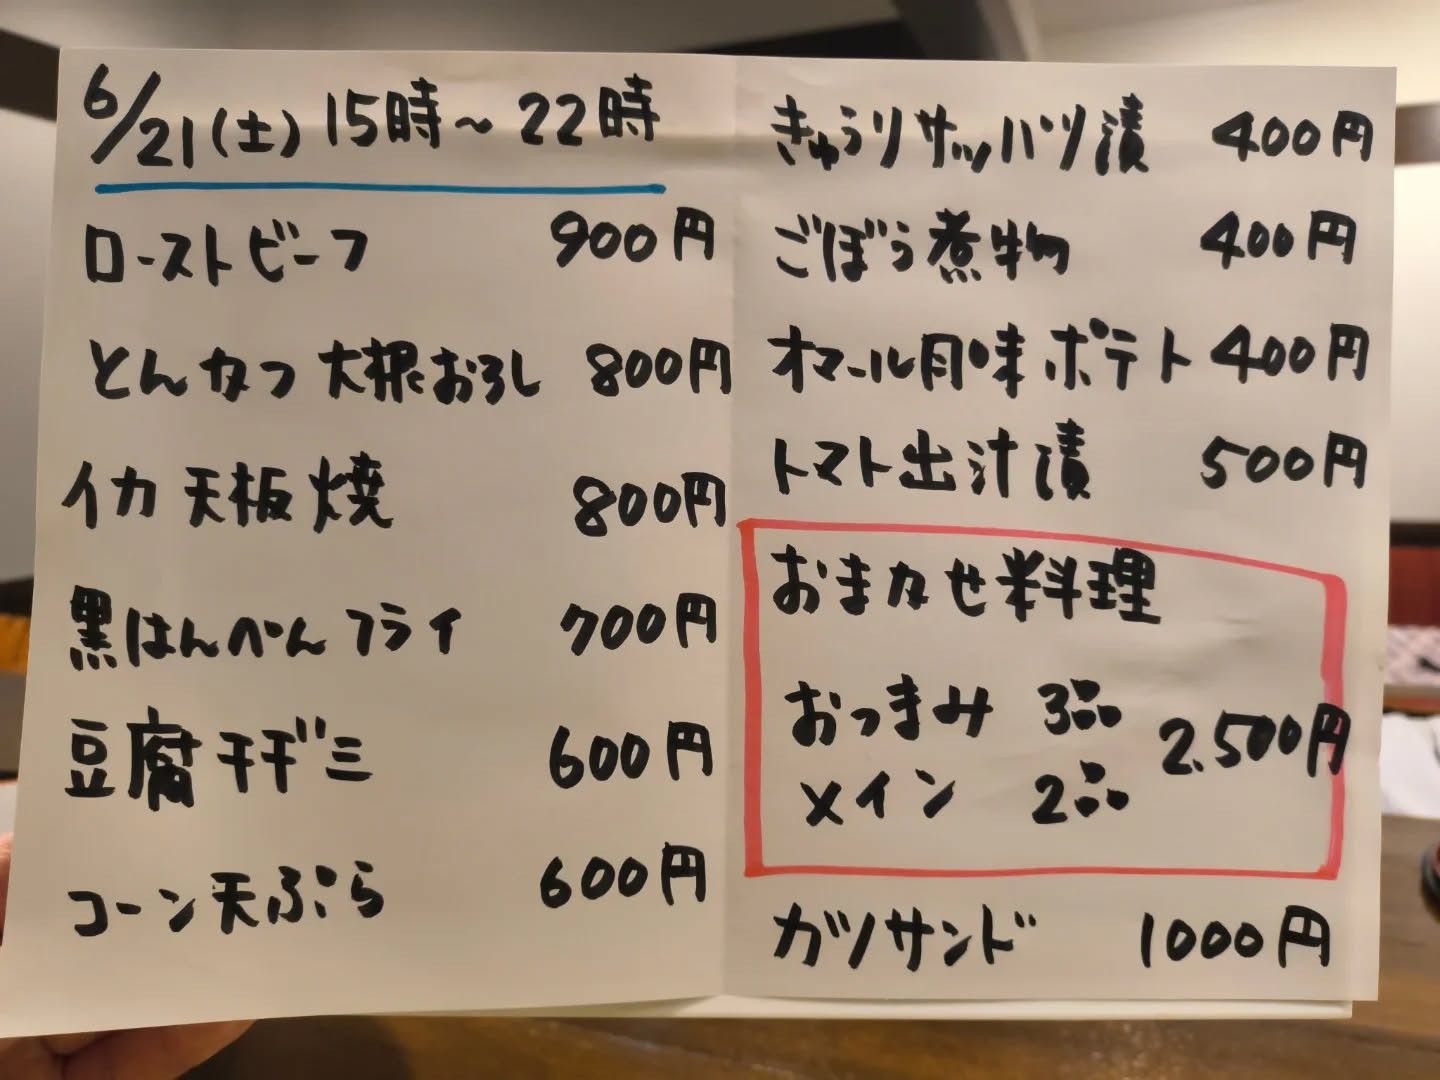 6/21(土) 15時〜22時
ローストビーフ 900円
とんかつ大根おろし 800円
イカ天板焼 800円
黒はんぺんフライ 700円
豆腐チヂミ 600円
コーン天ぷら 600円
きゅうりサッパツ漬 400円
ごぼう煮物 400円
オマール風味ポテト 400円
トマト出汁漬 500円
おまかせ料理
おつまみ 3品
2.500円
メイン 2品
カツサンド 1000円